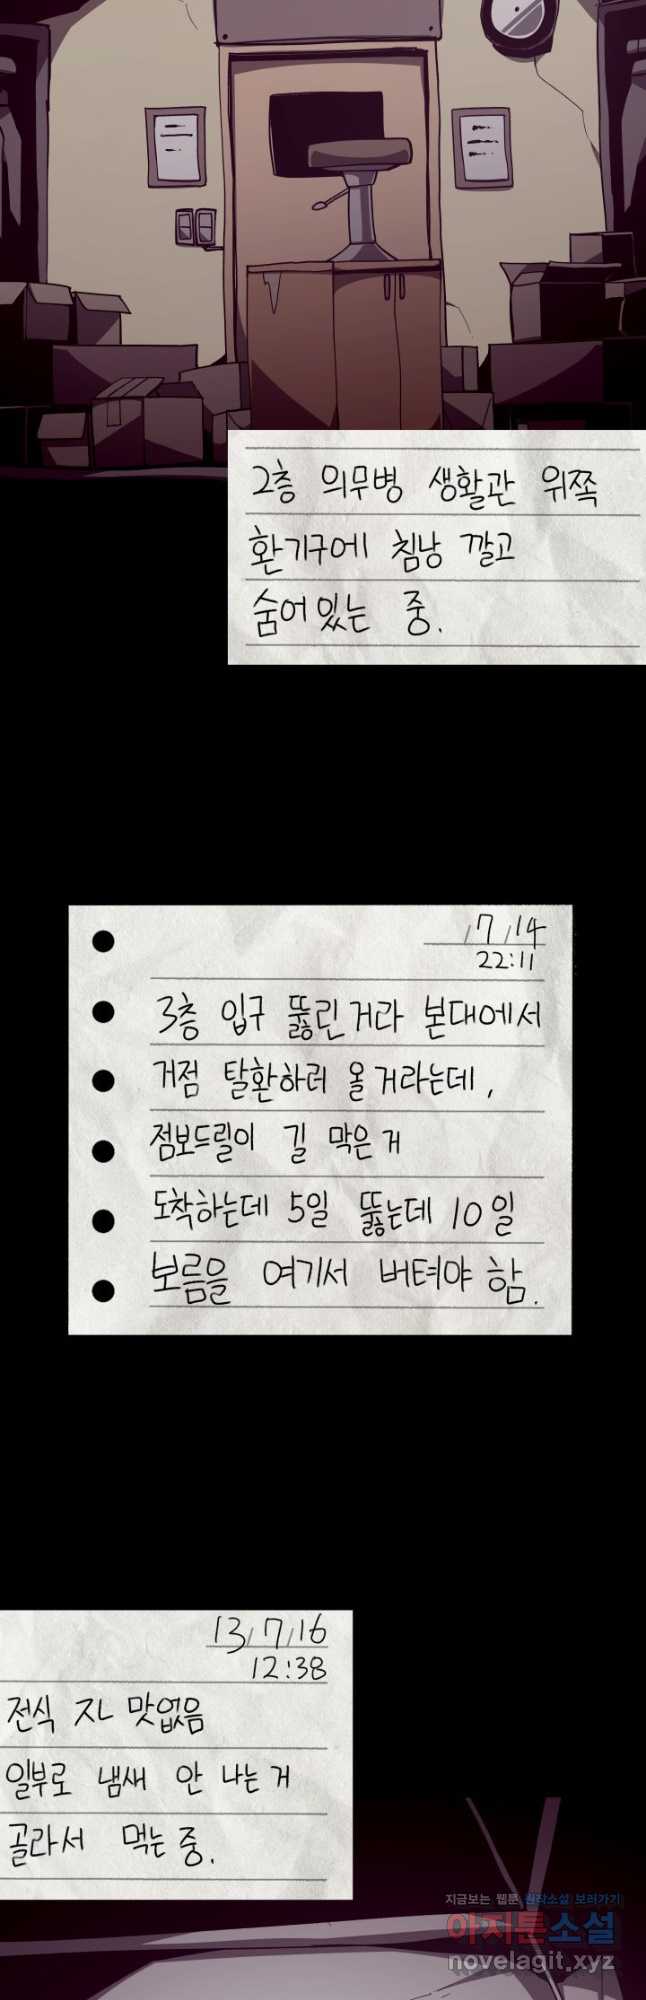 2층 의무병 생활관 위쪽
환기구에 침낭 깔고
숨어있는 중.
/7/14
22:11
3층 입구 뚫린거라 본대에서
거점 탈환하러 올거라는데,
점보드릴이 길 막은거
도착하는데 5일 뚫는데 10일
보름을 여기서 버텨야 함.
13/7/16
12:38
전식 ㅈㄴ 맛없음
일부로 냄새 안 나는거
골라서 먹는 중.
지금보는 웹툰 원작소설 보러가기
아지툰소설
novelagit.xyz